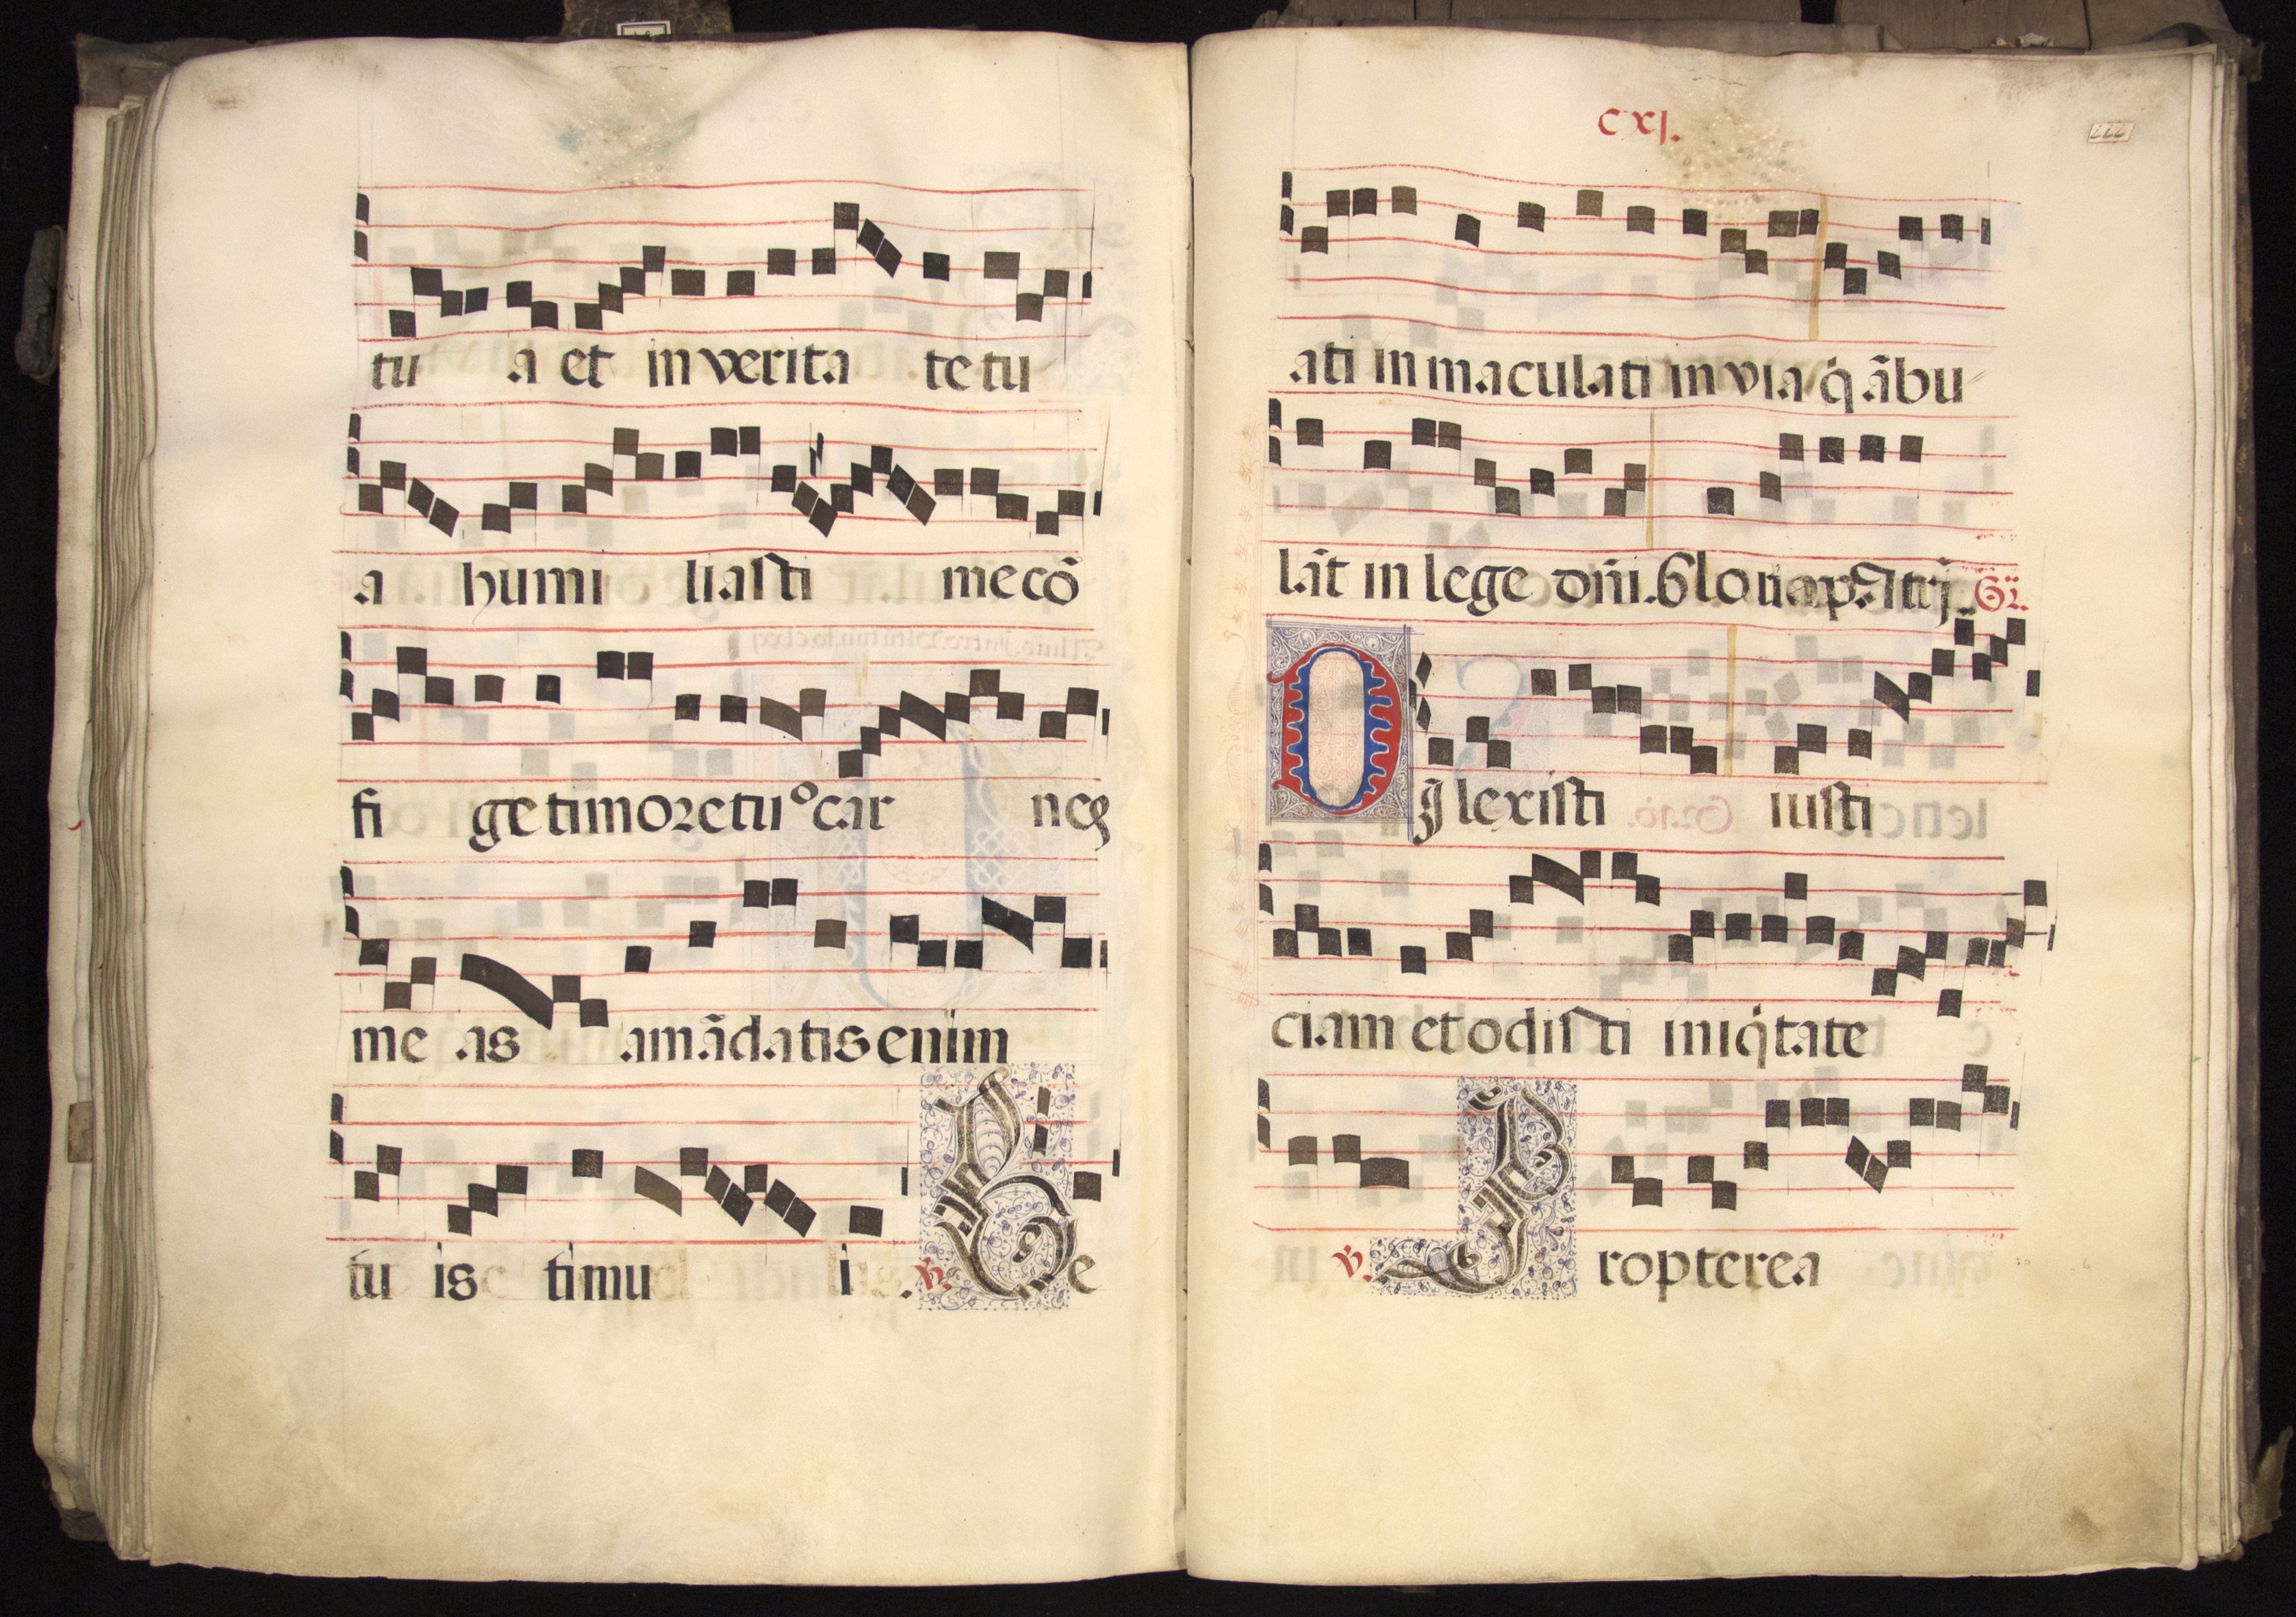 tu a et in verita te tu
a humi liasti me cō
fi ge timore tuo car neȝ
me as a mādatis enim
tu is timu i . ℣. Be
cxj.
ati in maculati in via q̇ ābu
lāt in lege dn̄i. Gloria patrj. Gr̄.
DJlexisti iusti
ciam et odisti iniq̇tate
℣. Propterea